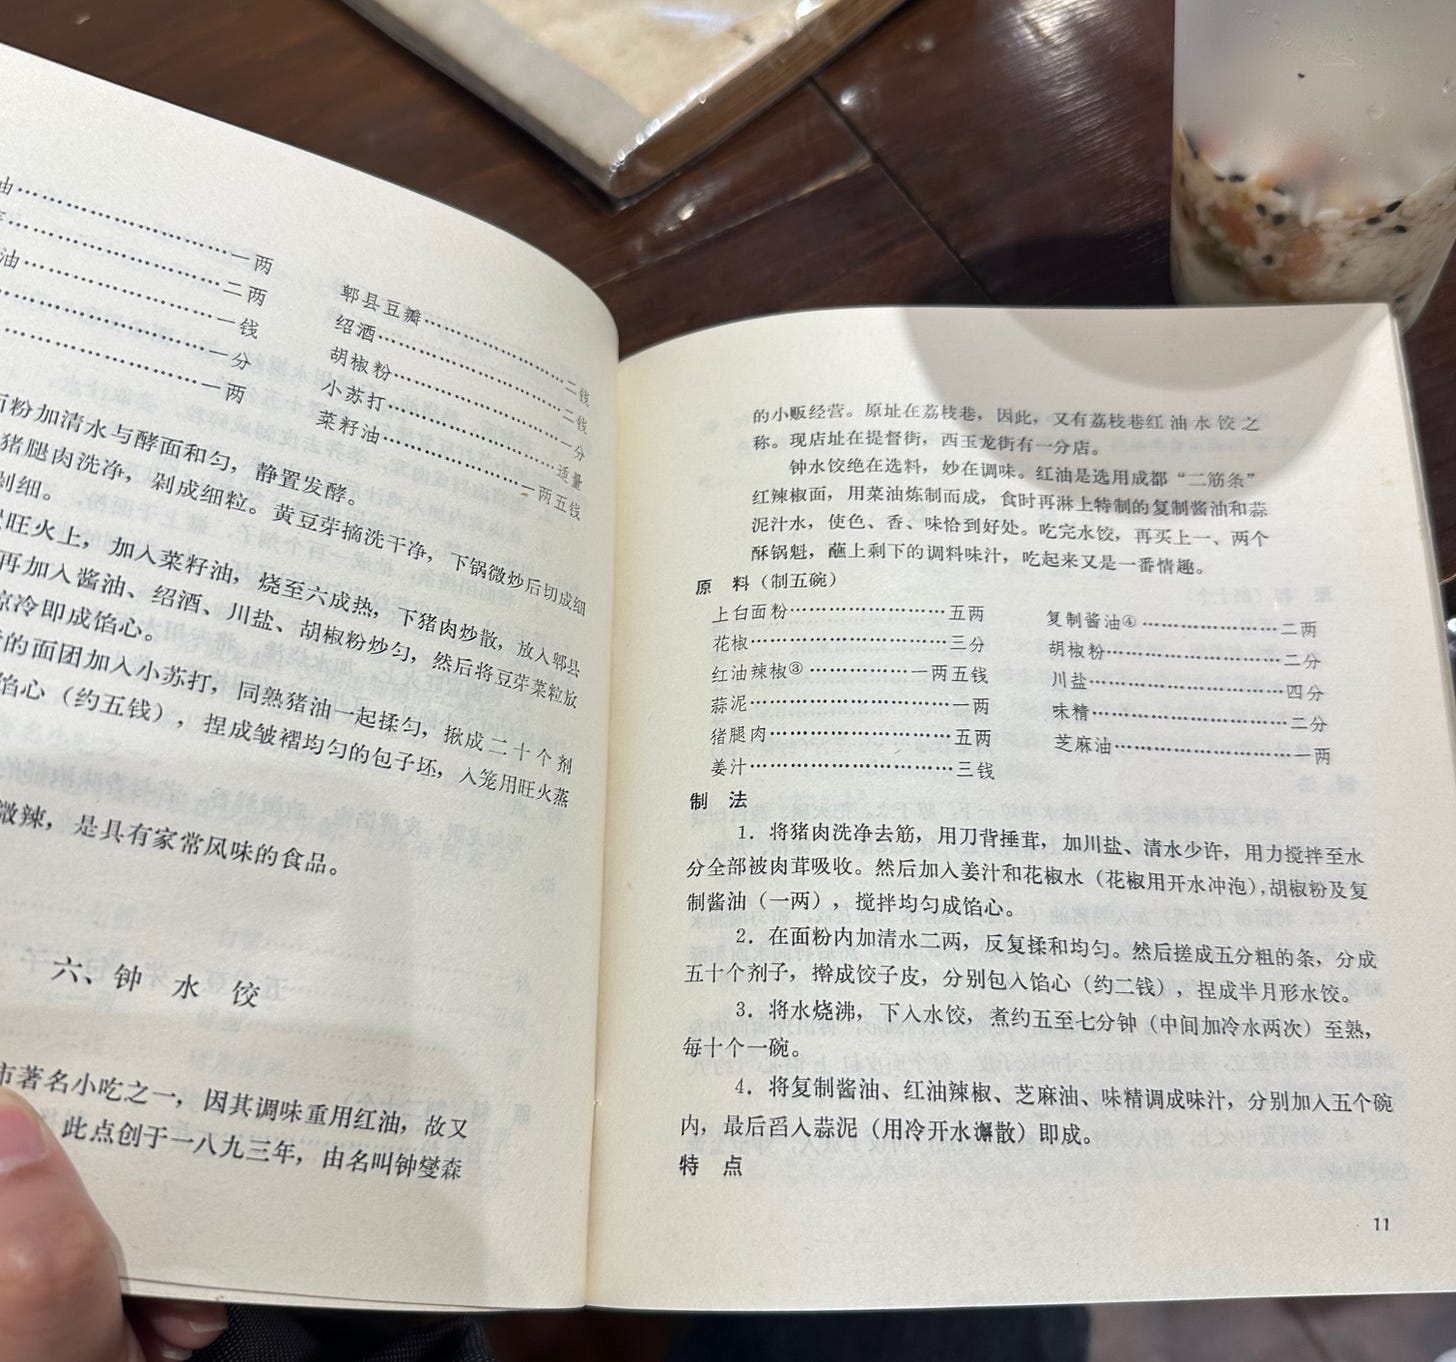 油……一两
……二两
油……一钱
……一分
……一两
郫县豆瓣……二钱
绍酒……二钱
胡椒粉……一分
小苏打……适量
菜籽油……一两五钱
面粉加清水与酵面和匀，静置发酵。
猪腿肉洗净，剁成细粒。黄豆芽摘洗干净，下锅微炒后切成细
剁细。
旺火上，加入菜籽油，烧至六成热，下猪肉炒散，放入郫县
再加入酱油、绍酒、川盐、胡椒粉炒匀，然后将豆芽菜粒放
凉冷即成馅心。
的面团加入小苏打，同熟猪油一起揉匀，揪成二十个剂
馅心（约五钱），捏成皱褶均匀的包子坯，入笼用旺火蒸
微辣，是具有家常风味的食品。
六、钟水饺
市著名小吃之一，因其调味重用红油，故又
此点创于一八九三年，由名叫钟燮森
的小贩经营。原址在荔枝巷，因此，又有荔枝巷红油水饺之
称。现店址在提督街，西玉龙街有一分店。
钟水饺绝在选料，妙在调味。红油是选用成都“二筋条”
红辣椒面，用菜油炼制而成，食时再淋上特制的复制酱油和蒜
泥汁水，使色、香、味恰到好处。吃完水饺，再买上一、两个
酥锅魁，蘸上剩下的调料味汁，吃起来又是一番情趣。
原料（制五碗）
上白面粉……五两
花椒……三分
红油辣椒③……一两五钱
蒜泥……一两
猪腿肉……五两
姜汁……三钱
复制酱油④……二两
胡椒粉……二分
川盐……四分
味精……二分
芝麻油……一两
制法
1．将猪肉洗净去筋，用刀背捶茸，加川盐、清水少许，用力搅拌至水
分全部被肉茸吸收。然后加入姜汁和花椒水（花椒用开水冲泡），胡椒粉及复
制酱油（一两），搅拌均匀成馅心。
2．在面粉内加清水二两，反复揉和均匀。然后搓成五分粗的条，分成
五十个剂子，擀成饺子皮，分别包入馅心（约二钱），捏成半月形水饺。
3．将水烧沸，下入水饺，煮约五至七分钟（中间加冷水两次）至熟，
每十个一碗。
4．将复制酱油、红油辣椒、芝麻油、味精调成味汁，分别加入五个碗
内，最后舀入蒜泥（用冷开水澥散）即成。
特点
11